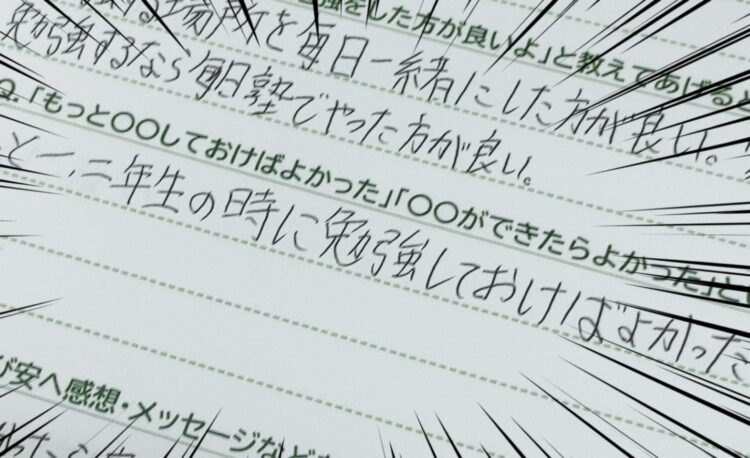 強をした方が良いよ」と教えてあげると
する場所を毎日一緒にした方が良い。
勉強するなら毎日塾でやった方が良い。
Q.「もっと〇〇しておけばよかった」「〇〇ができたらよかった」と
と一、二年生の時に勉強しておけばよかった
び安へ感想・メッセージなど